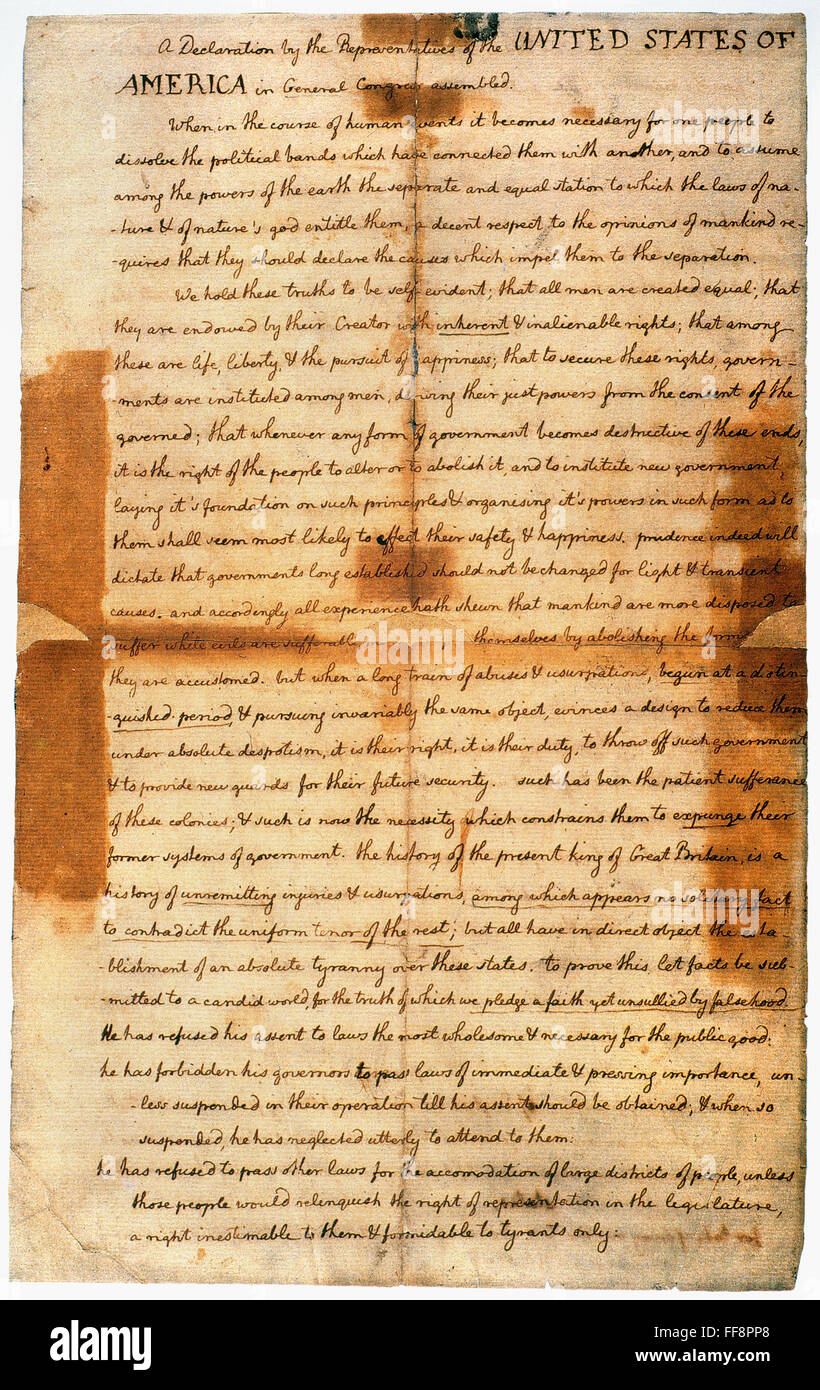 A Declaration by the Representatives of the UNITED STATES OF
AMERICA in General Congress assembled.
When in the course of human events it becomes necessary for one people to
dissolve the political bands which have connected them with another, and to assume
among the powers of the earth the separate and equal station to which the laws of na-
-ture & of nature's god entitle them, a decent respect to the opinions of mankind re-
-quires that they should declare the causes which impel them to the separation.
We hold these truths to be self-evident; that all men are created equal; that
they are endowed by their Creator with inherent & inalienable rights; that among
these are life, liberty, & the pursuit of happiness; that to secure these rights, govern-
-ments are instituted among men, deriving their just powers from the consent of the
governed; that whenever any form of government becomes destructive of these ends,
it is the right of the people to alter or to abolish it, and to institute new government,
laying it's foundation on such principles & organising it's powers in such form as to
them shall seem most likely to effect their safety & happiness. prudence indeed will
dictate that governments long established should not be changed for light & transient
causes. and accordingly all experience hath shewn that mankind are more disposed to
suffer while evils are sufferable themselves by abolishing the forms
they are accustomed. but when a long train of abuses & usurpations, begun at a distin-
-guished period, & pursuing invariably the same object, evinces a design to reduce them
under absolute despotism, it is their right, it is their duty, to throw off such government
& to provide new guards for their future security. such has been the patient sufferance
of these colonies; & such is now the necessity which constrains them to expunge their
former systems of government. the history of the present king of Great Britain, is a
history of unremitting injuries & usurpations, among which appears no solitary fact
to contradict the uniform tenor of the rest; but all have in direct object the esta-
-blishment of an absolute tyranny over these states. to prove this, let facts be sub-
-mitted to a candid world, for the truth of which we pledge a faith yet unsullied by falsehood.
He has refused his assent to laws the most wholesome & necessary for the public good:
he has forbidden his governors to pass laws of immediate & pressing importance, un-
-less suspended in their operation till his assent should be obtained; & when so
suspended, he has neglected utterly to attend to them:
he has refused to pass other laws for the accomodation of large districts of people, unless
those people would relinquish the right of representation in the legislature,
a right inestimable to them & formidable to tyrants only:
alamy
Image ID: FF8PP8
www.alamy.com